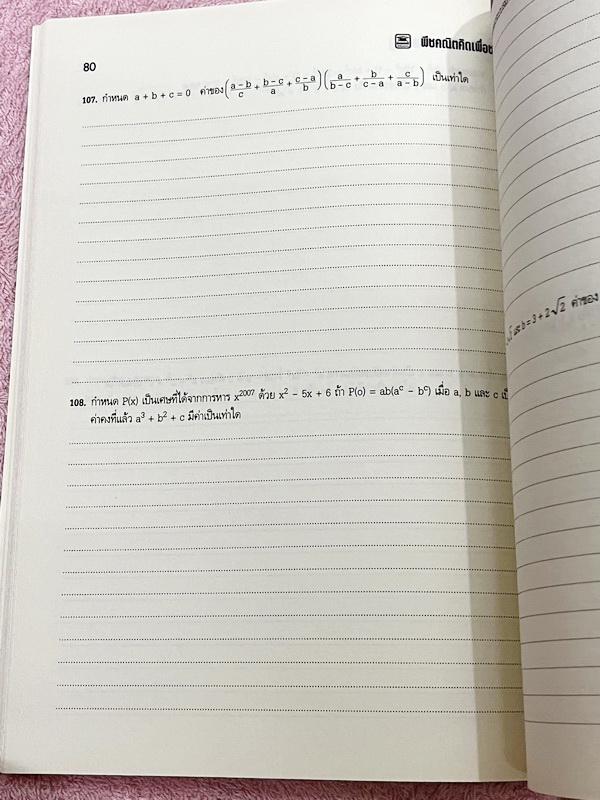 พีชคณิตคิดเพื่อ
80
107. กำหนด a + b + c = 0 ค่าของ ( (a − b)/c + (b − c)/a + (c − a)/b ) ( a/(b − c) + b/(c − a) + c/(a − b) ) เป็นเท่าใด
b = 3 + 2√2 ค่าของ
108. กำหนด P(x) เป็นเศษที่ได้จากการหาร x²⁰⁰⁷ ด้วย x² − 5x + 6 ถ้า P(o) = ab(aᶜ − bᶜ) เมื่อ a, b และ c
ค่าคงที่แล้ว a³ + b² + c มีค่าเป็นเท่าใด